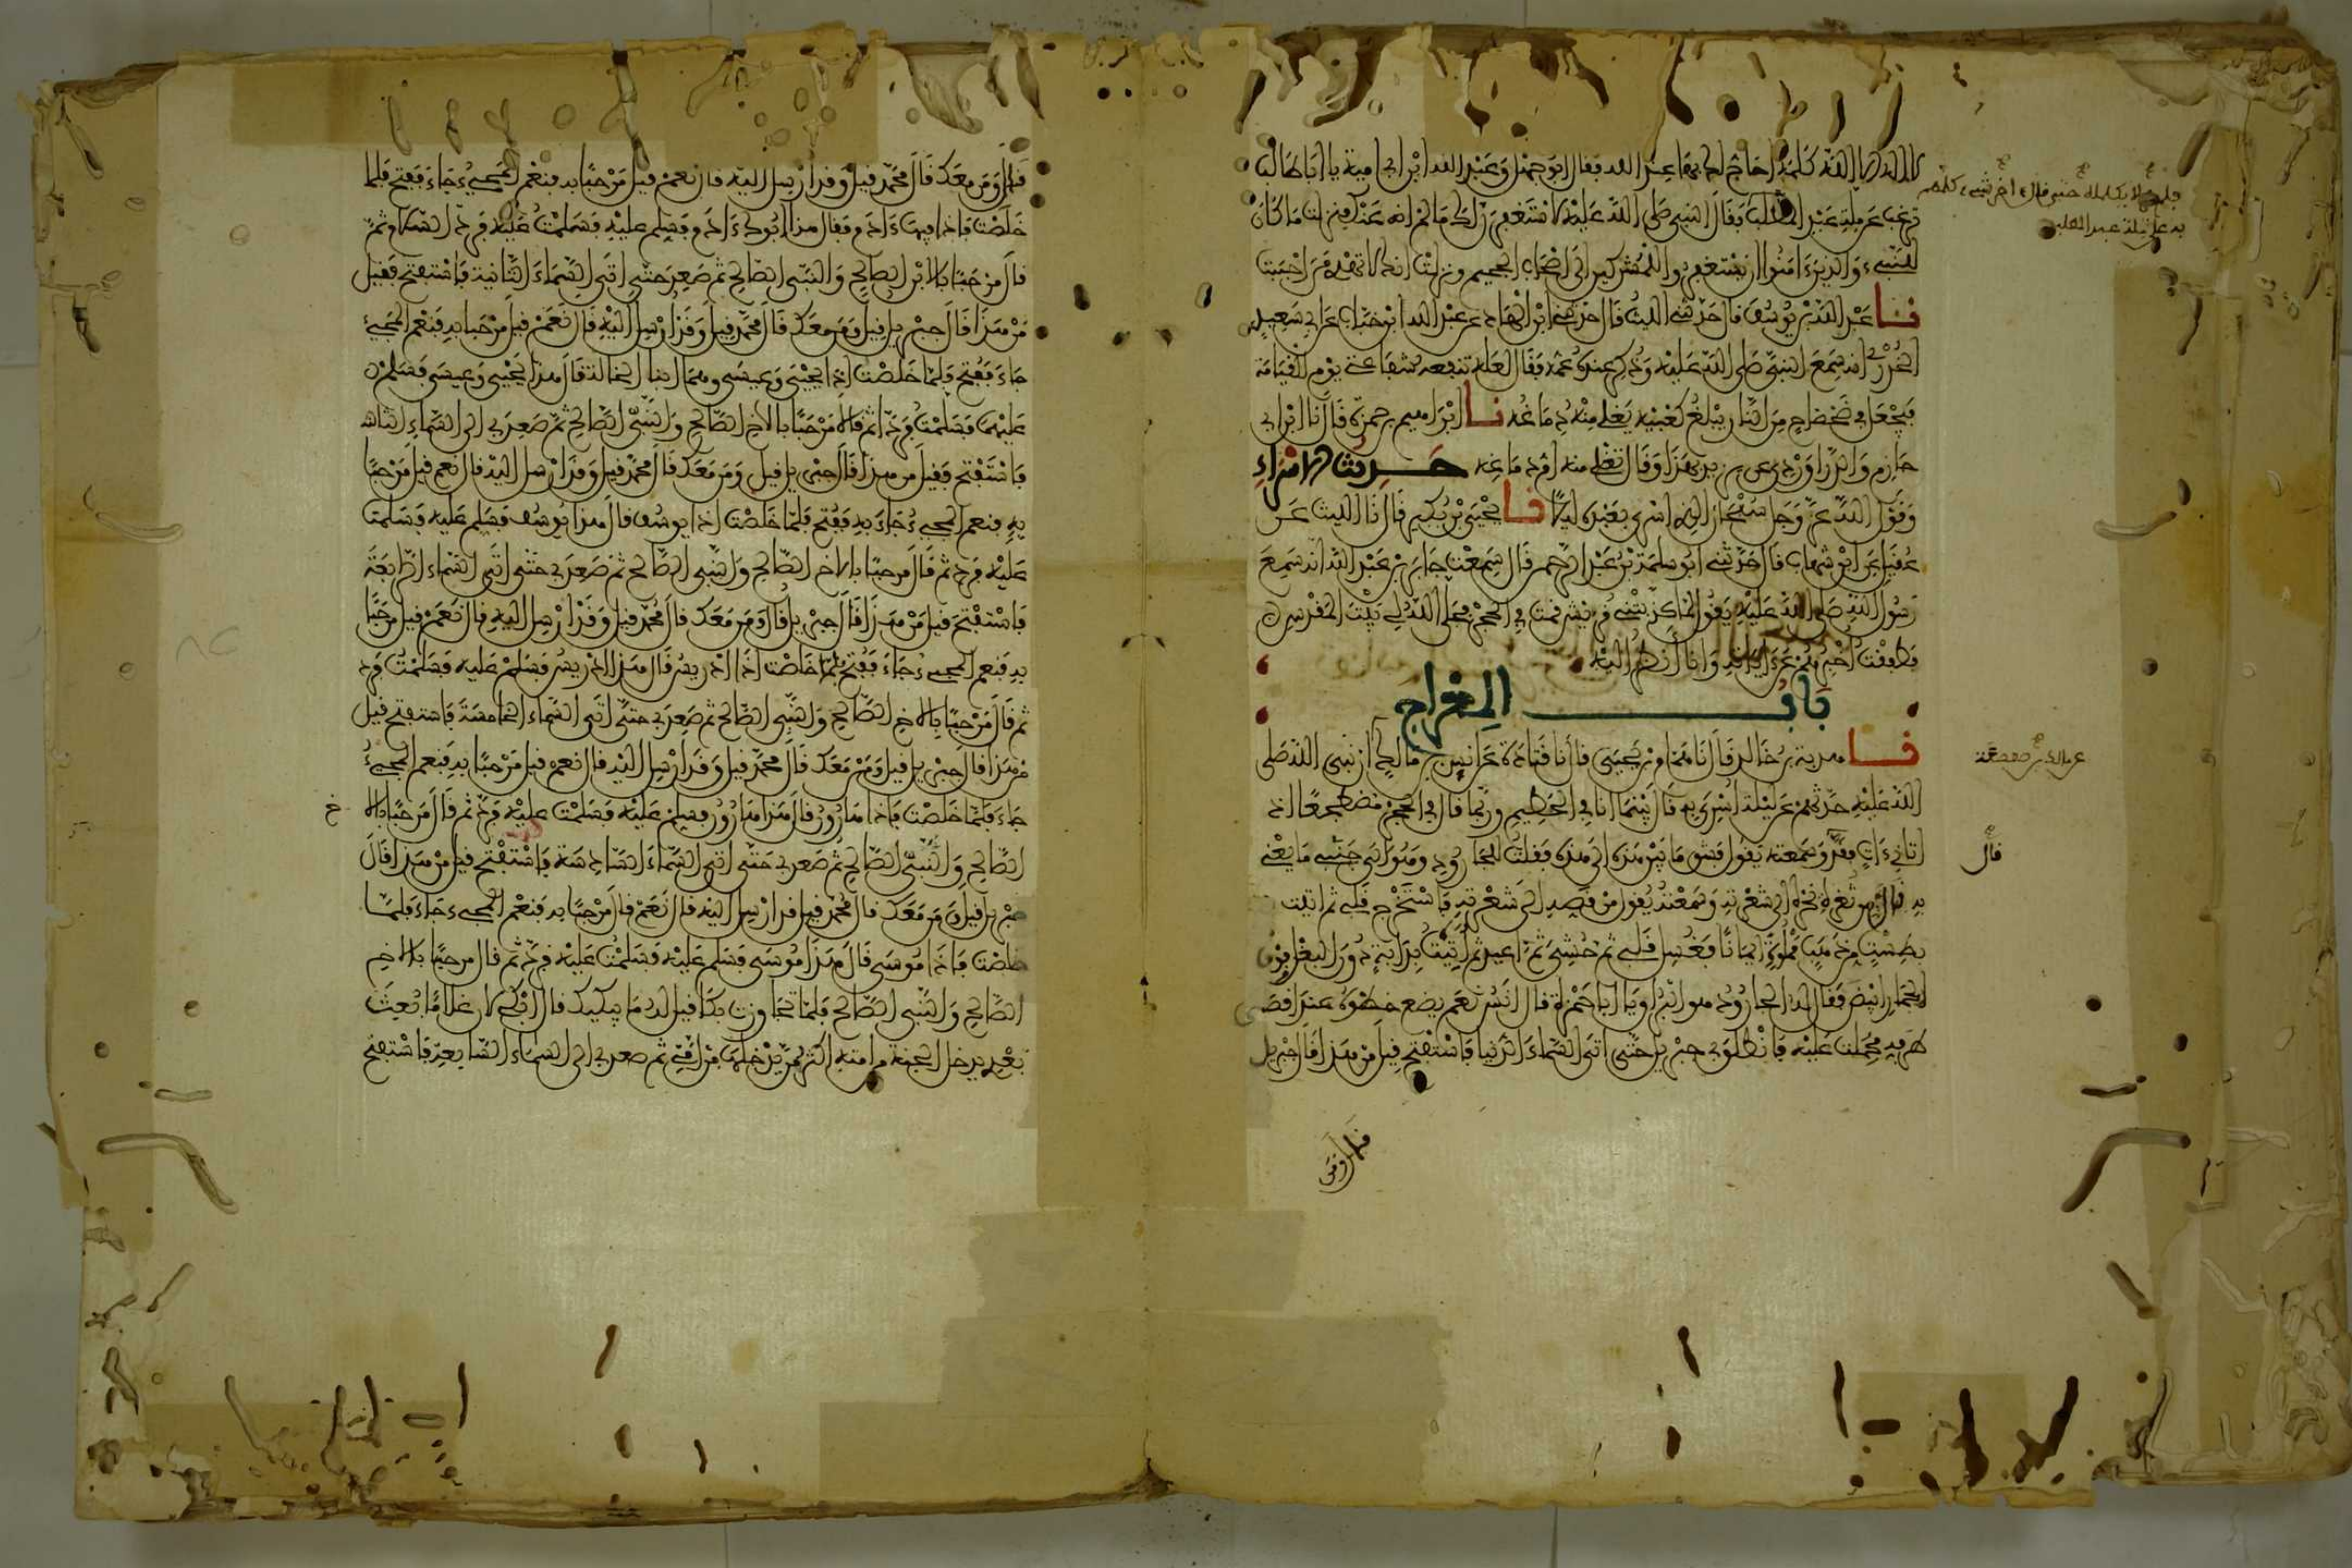 لا إله إلا الله كلمة أحاج لك بها عند الله فقال أبو جهل وعبد الله ابن أبي أمية يا أبا طالب
ترغب عن ملة عبد المطلب فقال النبي صلى الله عليه لأستغفرن لك ما لم أنه عنك فنزلت ما كان
للنبيء والذين ءامنوا أن يستغفروا للمشركين إلى أصحاب الجحيم ونزلت إنك لا تهدي من أحببت
نا عبد الله بن يوسف قال حدثني الليث قال حدثني ابن الهاد عن عبد الله ابن خباب عن أبي سعيد
الخدري أنه سمع النبي صلى الله عليه وذكر عنده عمه فقال لعله تنفعه شفاعتي يوم القيامة
فيجعل في ضحضاح من النار يبلغ كعبيه يغلي منه دماغه نا إبراهيم بن حمزة قال نا ابن أبي
حازم والدراوردي عن يزيد بهذا وقال تغلي منه أم دماغه حديث الإسراء
وقول الله عز وجل سبحان الذي أسرى بعبده ليلا نا يحيى بن بكير قال نا الليث عن
عقيل عن ابن شهاب قال حدثني أبو سلمة بن عبد الرحمن قال سمعت جابر بن عبد الله أنه سمع
رسول الله صلى الله عليه يقول لما كذبتني قريش قمت في الحجر فجلى الله لي بيت المقدس
فطفقت أخبرهم عن ءاياته وأنا أنظر إليه
باب المعراج
نا هدبة بن خالد قال نا همام بن يحيى قال نا قتادة عن أنس بن مالك أن نبي الله صلى
الله عليه حدثهم عن ليلة أسري به قال بينما أنا في الحطيم وربما قال في الحجر مضطجعا إذ
أتاني ءات فقد وسمعته يقول فشق ما بين هذه إلى هذه فقلت للجارود وهو إلى جنبي ما يعني
به قال من ثغرة نحره إلى شعرته وسمعته يقول من قصه إلى شعرته فاستخرج قلبي ثم أتيت
بطست من ذهب مملوءة إيمانا فغسل قلبي ثم حشي ثم أعيد ثم أتيت بدابة دون البغل وفوق
الحمار أبيض فقال له الجارود هو البراق يا أبا حمزة قال أنس نعم يضع خطوه عند أقصى
طرفه فحملت عليه فانطلق بي جبريل حتى أتى السماء الدنيا فاستفتح قيل من هذا قال جبريل
عن مالك بن صعصعة
قال
قيل ومن
قيل ومن معك قال محمد قيل وقد أرسل إليه قال نعم قيل مرحبا به فنعم المجيء جاء ففتح فلما
خلصت فإذا فيها ءادم فقال هذا أبوك ءادم فسلم عليه فسلمت عليه فرد السلام ثم
قال مرحبا بالابن الصالح والنبي الصالح ثم صعد حتى أتى السماء الثانية فاستفتح فقيل
من هذا قال جبريل قيل ومن معك قال محمد قيل وقد أرسل إليه قال نعم قيل مرحبا به فنعم المجيء
جاء ففتح فلما خلصت إذا يحيى وعيسى وهما ابنا الخالة قال هذا يحيى وعيسى فسلم
عليهما فسلمت فردا ثم قالا مرحبا بالأخ الصالح والنبي الصالح ثم صعد بي إلى السماء الثالثة
فاستفتح فقيل من هذا قال جبريل قيل ومن معك قال محمد قيل وقد أرسل إليه قال نعم قيل مرحبا
به فنعم المجيء جاء به ففتح فلما خلصت إذا يوسف قال هذا يوسف فسلم عليه فسلمت
عليه فرد ثم قال مرحبا بالأخ الصالح والنبي الصالح ثم صعد بي حتى أتى السماء الرابعة
فاستفتح قيل من هذا قال جبريل قال ومن معك قال محمد قيل وقد أرسل إليه قال نعم قيل مرحبا
به فنعم المجيء جاء ففتح فلما خلصت إذا إدريس قال هذا إدريس فسلم عليه فسلمت فرد
ثم قال مرحبا بالأخ الصالح والنبي الصالح ثم صعد بي حتى أتى السماء الخامسة فاستفتح قيل
من هذا قال جبريل قيل ومن معك قال محمد قيل وقد أرسل إليه قال نعم قيل مرحبا به فنعم المجيء
جاء فلما خلصت فإذا هارون قال هذا هارون فسلم عليه فسلمت عليه فرد ثم قال مرحبا بالأخ
الصالح والنبي الصالح ثم صعد بي حتى أتى السماء السادسة فاستفتح قيل من هذا قال
جبريل قيل ومن معك قال محمد قيل قد أرسل إليه قال نعم قال مرحبا به فنعم المجيء جاء فلما
خلصت فإذا موسى قال هذا موسى فسلم عليه فسلمت عليه فرد ثم قال مرحبا بالأخ
الصالح والنبي الصالح فلما تجاوزت بكا قيل له ما يبكيك قال أبكي لأن غلاما بعث
بعدي يدخل الجنة من أمته أكثر ممن يدخلها من أمتي ثم صعد بي إلى السماء السابعة فاستفتح
خ